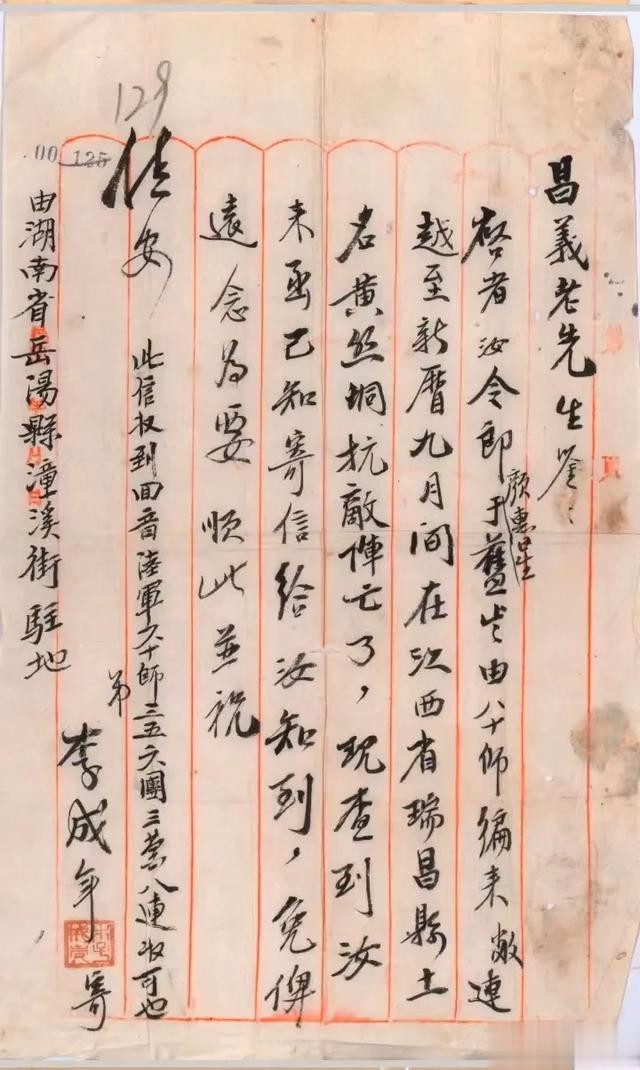 129
00 125
昌義老先生鑒：
啓者汝令郎顏惠星于舊歲由八十師編来敝連
越至新曆九月间在江西省瑞昌縣土
名黄丝垌抗敵陣亡了，現查到汝
未函已知寄信給汝知到，免俾
遠念為要 順此並祝
佳安
此信收到回音陸軍六十師三五六團三营八連收可也
弟 李成年 寄
由湖南省岳陽縣潼溪街駐地